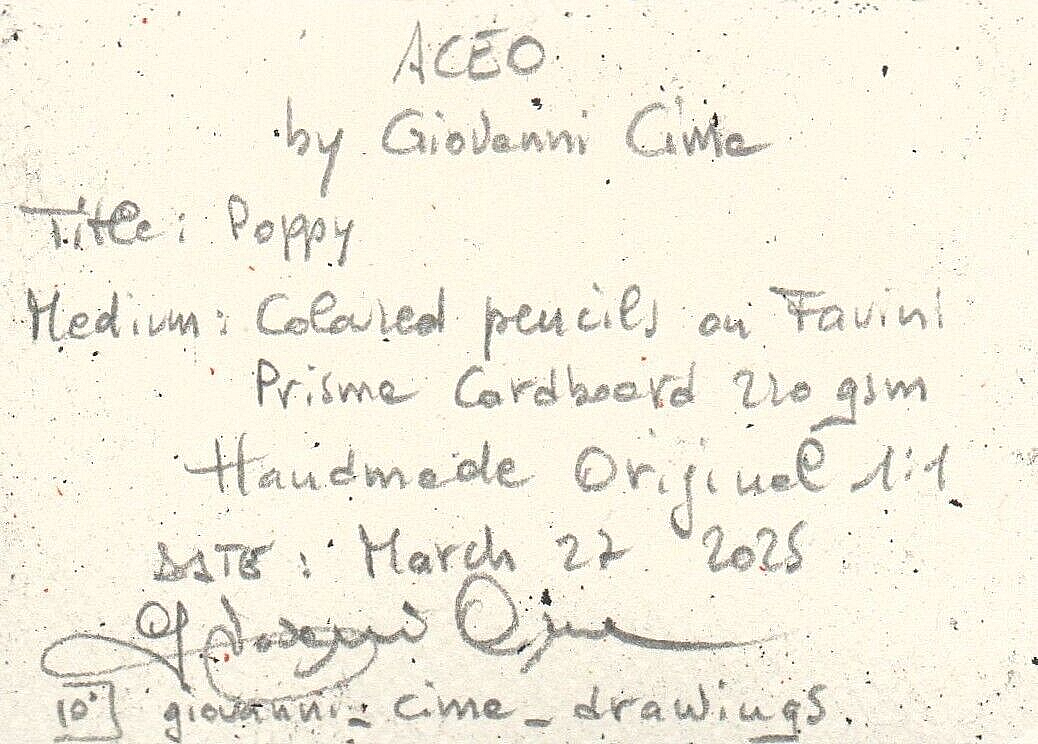 ACEO
by Giovanni Cime
Title: Poppy
Medium: Colored pencils on Favini
Prisma Cardboard 220 gsm
Handmade Original 1:1
DATE: March 27 2025
Giovanni Cime
giovanni_cime_drawings